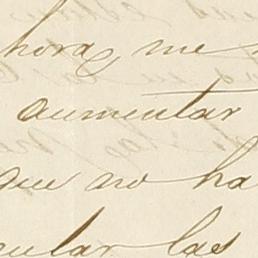 hora me
aumentar
que no ha
cular las